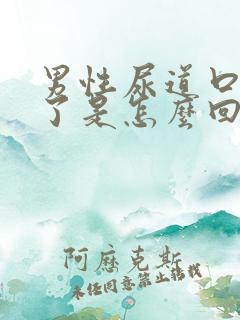 男性尿道口
了是怎麼回
阿歷克斯
未经同意禁止转载